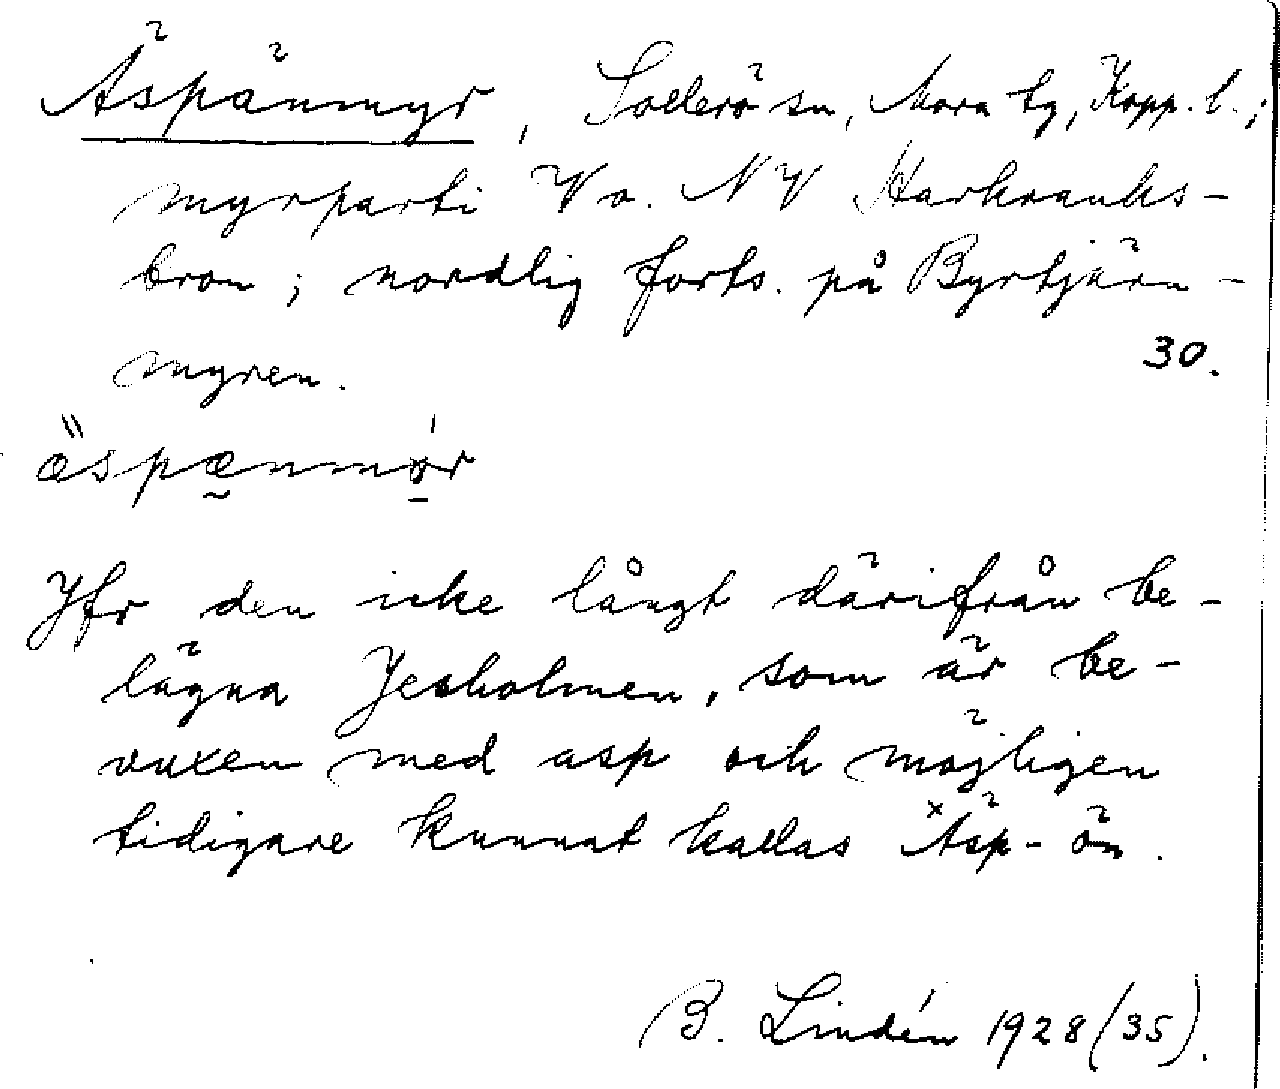 Äspänmyr, Sollerö sn, Mora tg, Kopp. l.;
myrparti V o. NV Harkranks-
bron; nordlig forts. på Byrtjärn-
myren. 30.
äspænmør
Jfr den icke långt därifrån be-
lägna Jesholmen, som är be-
vuxen med asp och möjligen
tidigare kunnat kallas ˣÄsp-ön.
B. Lindén 1928 (35).